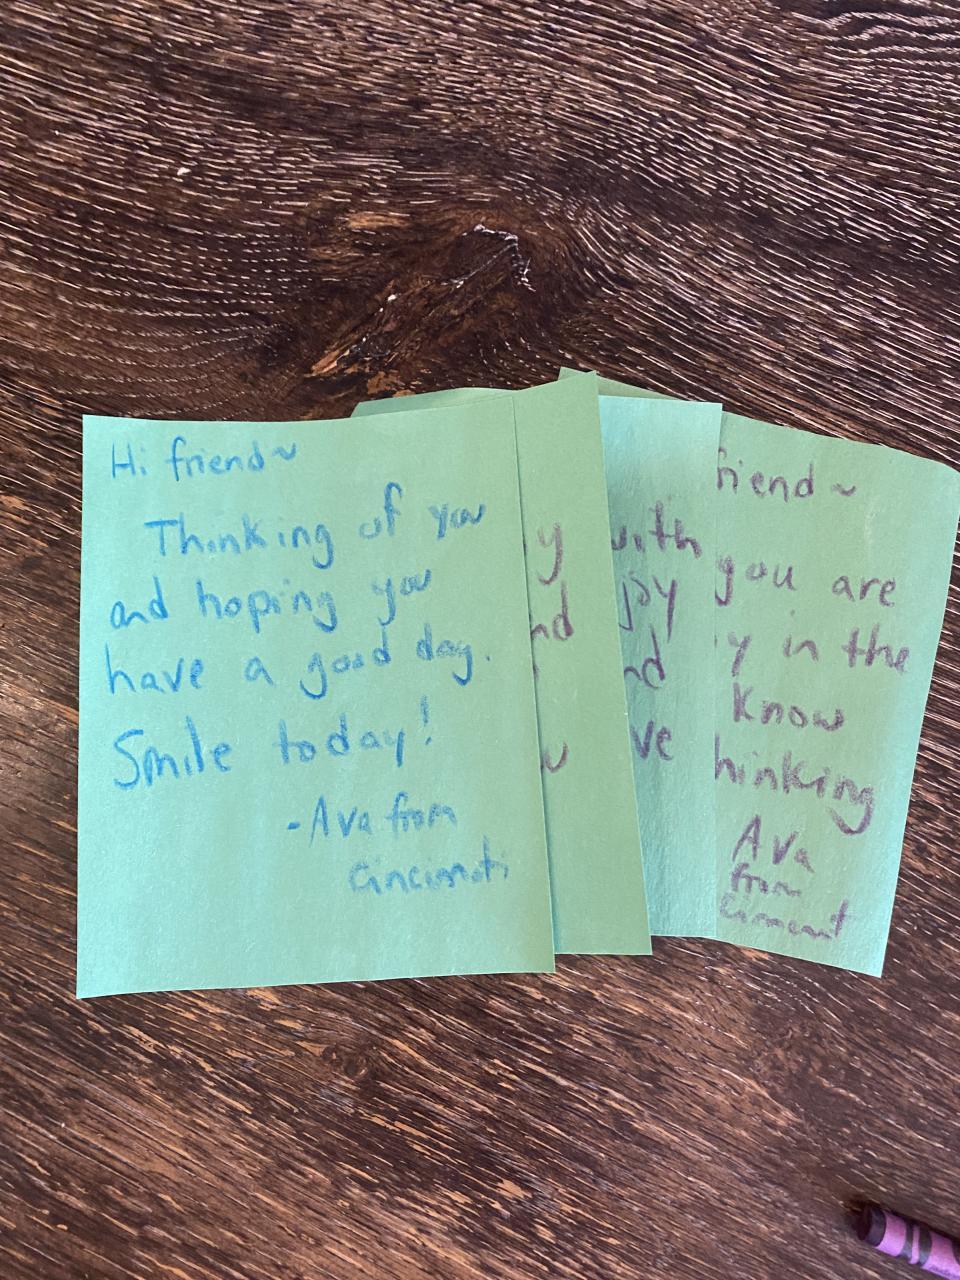 Hi friend~
Thinking of you
and hoping you
have a good day.
Smile today!
-Ava from
Cincinnati
y
nd
with
joy
nd
ve
friend ~
you are
y in the
Know
hinking
Ava
from